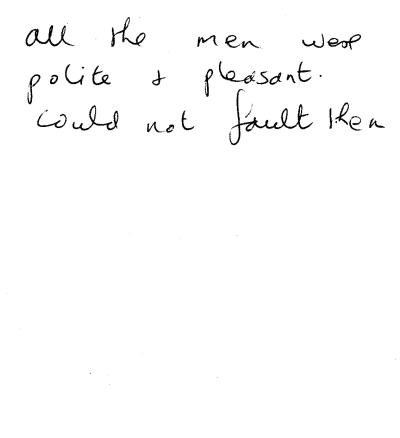 all the men were
polite & pleasant.
Could not fault them